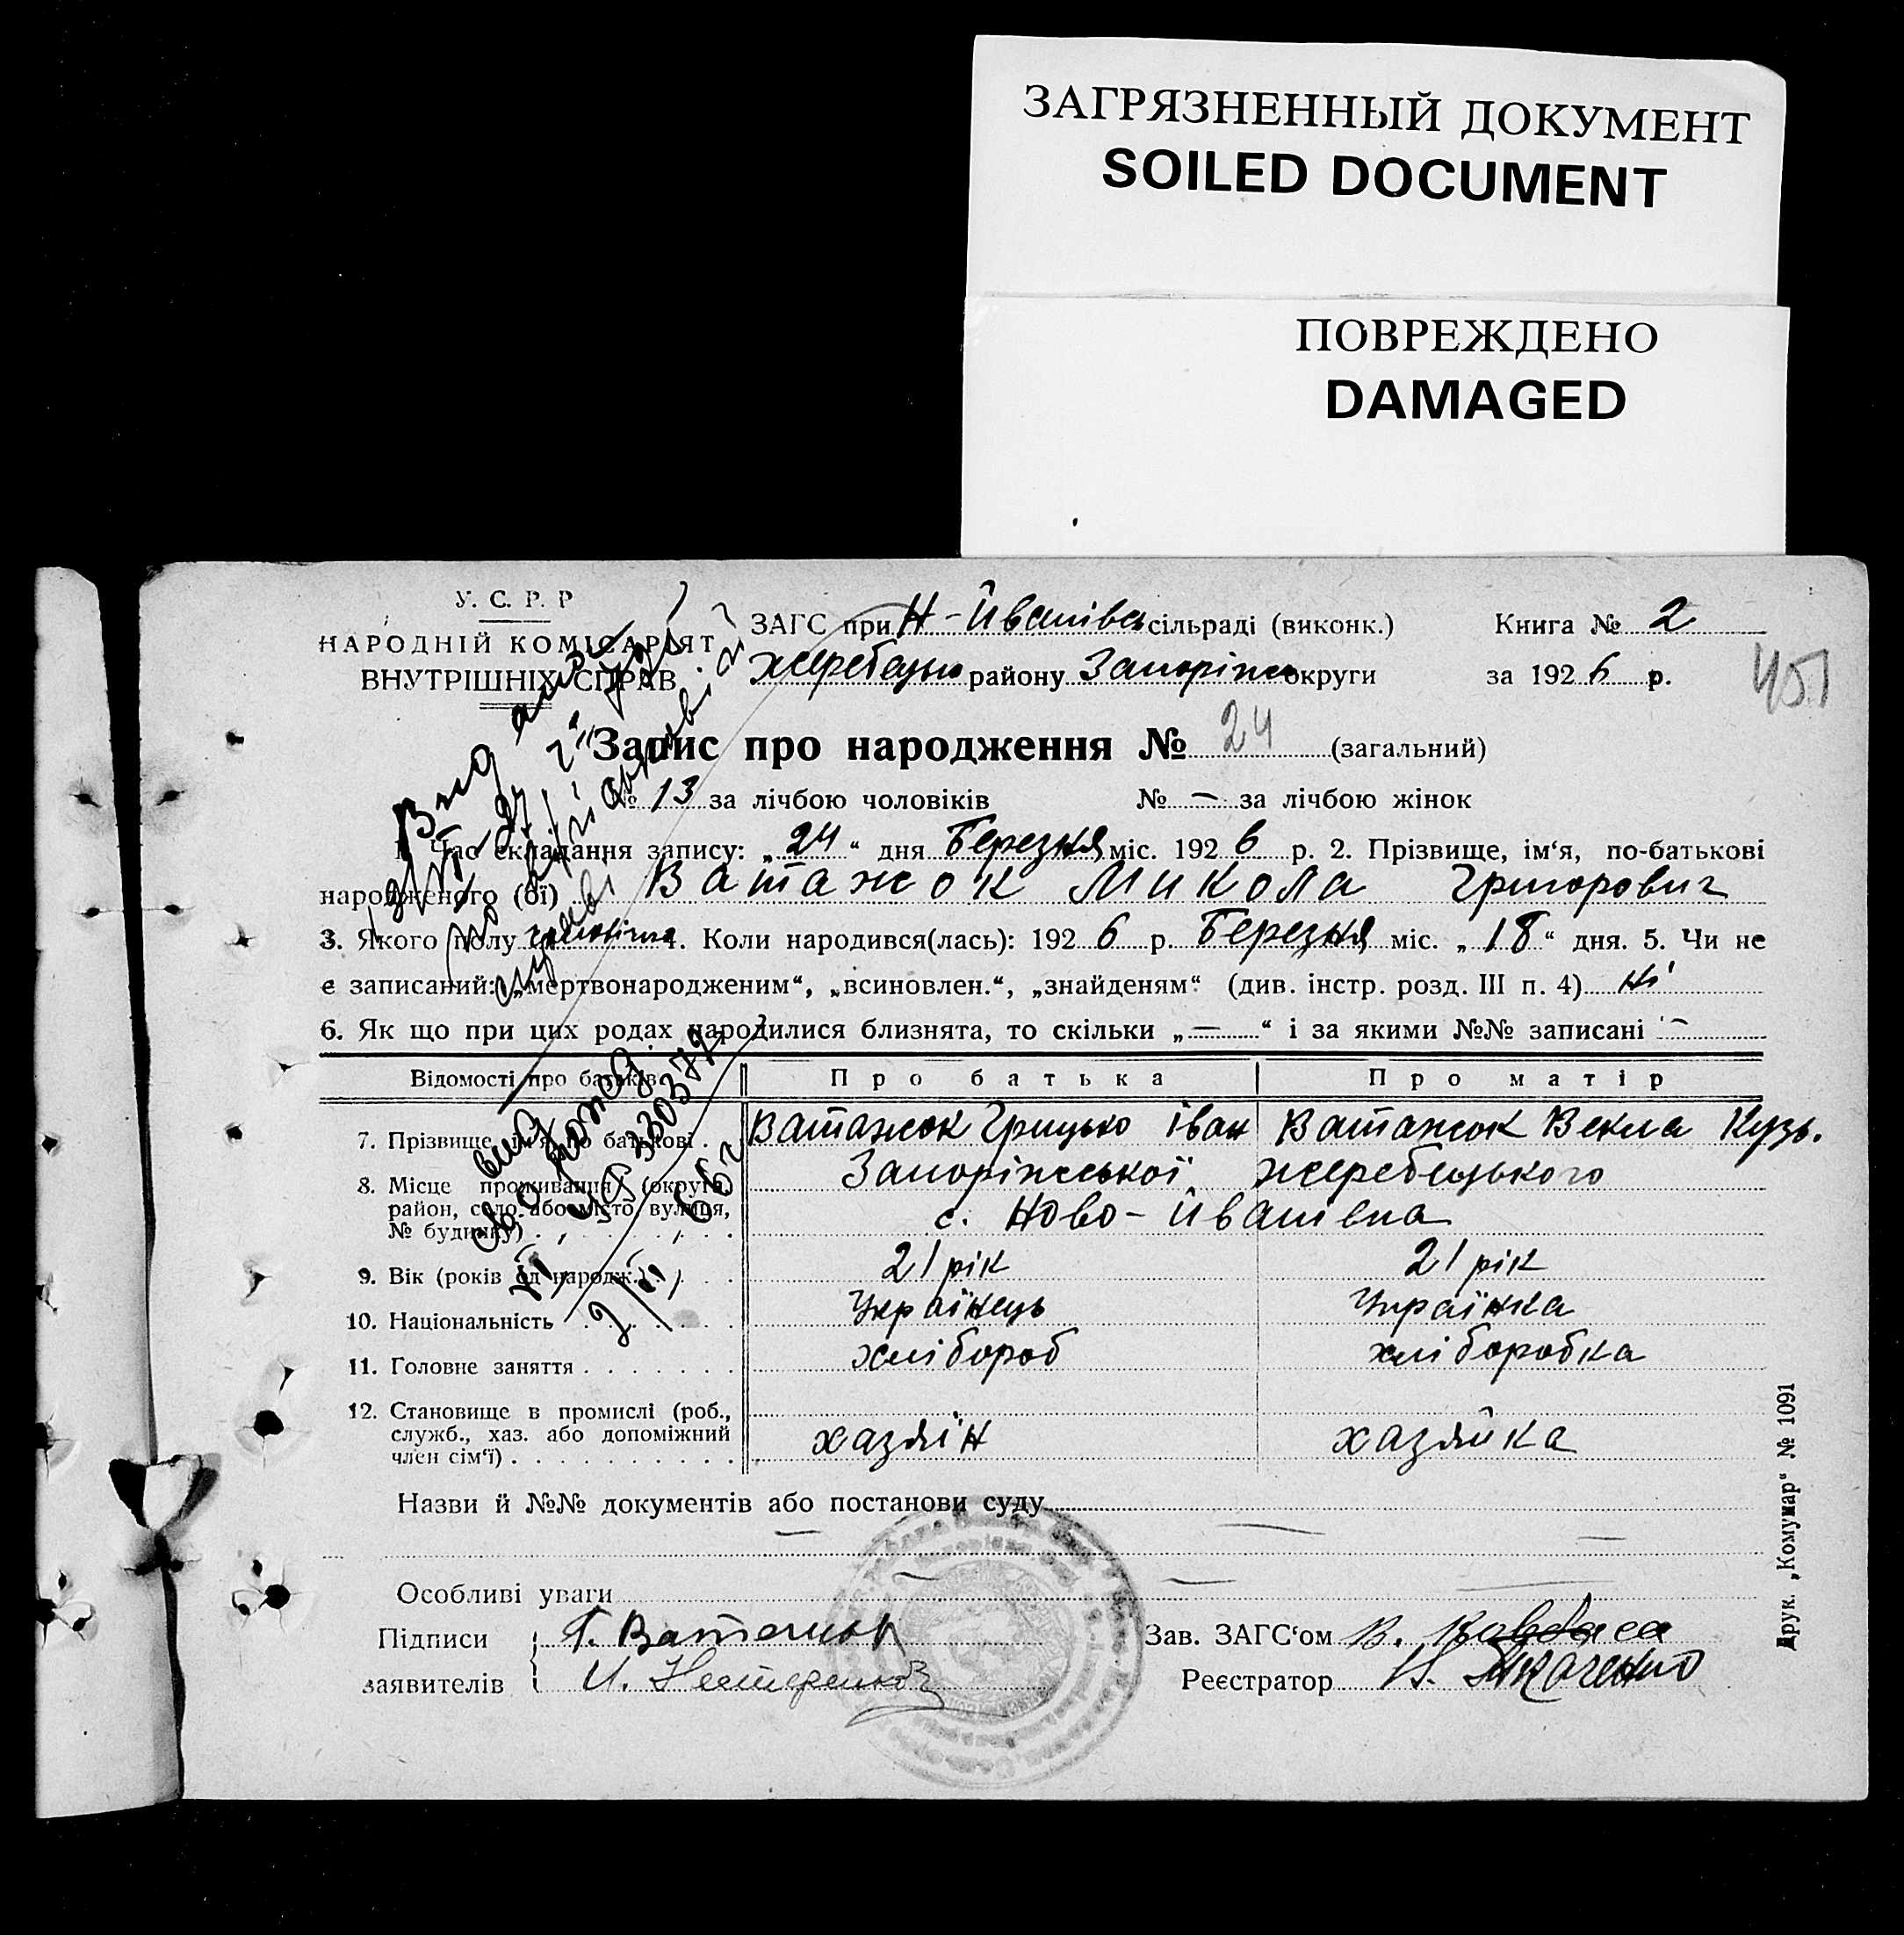 ЗАГРЯЗНЕННЫЙ ДОКУМЕНТ
SOILED DOCUMENT
ПОВРЕЖДЕНО
DAMAGED
У. С. Р. Р
НАРОДНІЙ КОМІСАРІЯТ
ВНУТРІШНІХ СПРАВ
ЗАГС при Н-Йванівськ сільраді (виконк.) Книга № 2
Жеребецько району Запоріж округи за 1926 р.
451
Запис про народження № 24 (загальний)
№ 13 за лічбою чоловіків № — за лічбою жінок
1. Час складання запису: „24“ дня Березня міс. 1926 р. 2. Прізвище, ім‘я, по-батькові
народженого (ої) Ватажок Микола Григорович
3. Якого полу чоловіча 4. Коли народився(лась): 1926 р. Березня міс. „18“ дня. 5. Чи не
є записаний: „мертвонародженим“, „всиновлен.“, „знайденям“ (див. інстр. розд. III п. 4) Ні
6. Як що при цих родах народилися близнята, то скільки „—“ і за якими №№ записані —
Відомості про батьків Про батька Про матір
7. Прізвище, ім‘я, по батькові . Ватажок Грицько Іван Ватажок Векла Кузь.
8. Місце проживання (округа, Запоріжської Жеребецького
район, село або місто, вулиця, с. Ново-Йванівка
№ будинку) .
9. Вік (років од народж.) . . . 21 рік 21 рік
10. Національність . . . . . . Українець Українка
11. Головне заняття . . . . . . . хлібороб хліборобка
12. Становище в промислі (роб.,
служб., хаз. або допоміжний хазяїн хазяйка
член сім‘ї) . . . . . . . . . .
Назви й №№ документів або постанови суду
Особливі уваги
Підписи Г. Ватажок Зав. ЗАГС‘ом В.
заявителів И. Реєстратор Ткаченко
Друк. „Комунар“ № 1091